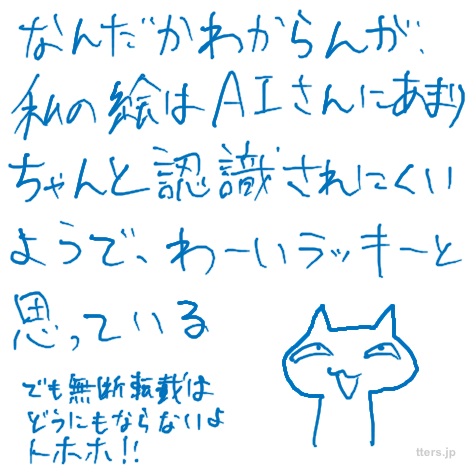 なんだかわからんが、
私の絵はAIさんにあまり
ちゃんと認識されにくい
ようで、わーいラッキーと
思っている
でも無断転載は
どうにもならないよ
トホホ!!
tters.jp